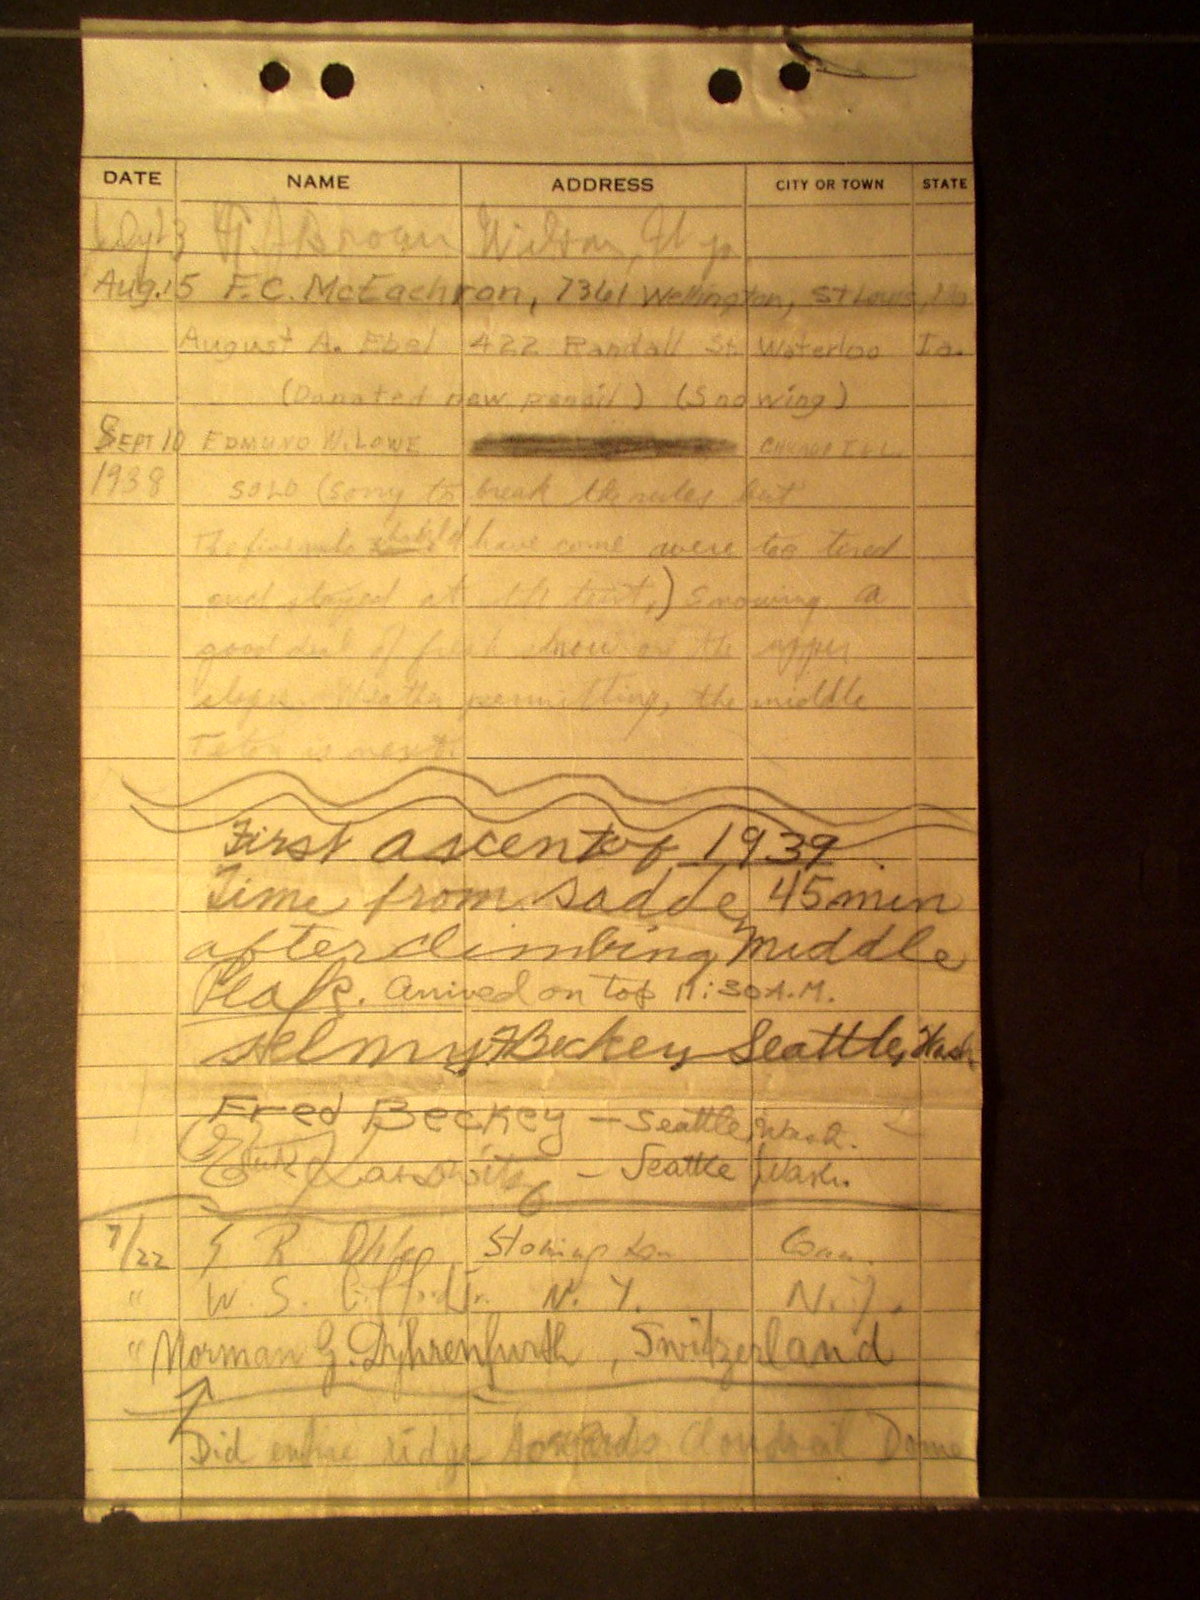 DATE NAME ADDRESS CITY OR TOWN STATE
July 23 Brown Wilson, Wyo
Aug. 15 F.C. McEachran, 7361 Wellington, St Louis, Mo
August A. Ebel 422 Randall St. Waterloo Ia.
(Donated new pencil) (Snowing)
SEPT 10 EDMUND W. LOWE ILL.
1938 SOLO (sorry to break the rules but
The should have come were too tired
and stayed at the tent,) Snowing a
good deal of fresh snow on the upper
slopes. Weather permitting, the middle
Teton is next.
First ascent of 1939.
Time from sadde, 45 min
after climbing Middle
Peak. Arrived on top 11:30 A.M.
Helmy F Beckey Seattle, Wash
Fred Beckey — Seattle, Wash.
Erik Larsson – Seattle, Wash.
7/22 R Stonington Conn.
" W. S. Gifford Jr. N.Y. N.Y.
" Norman G. Dyhrenfurth, Switzerland
Did entire ridge towards Cloudveil Dome